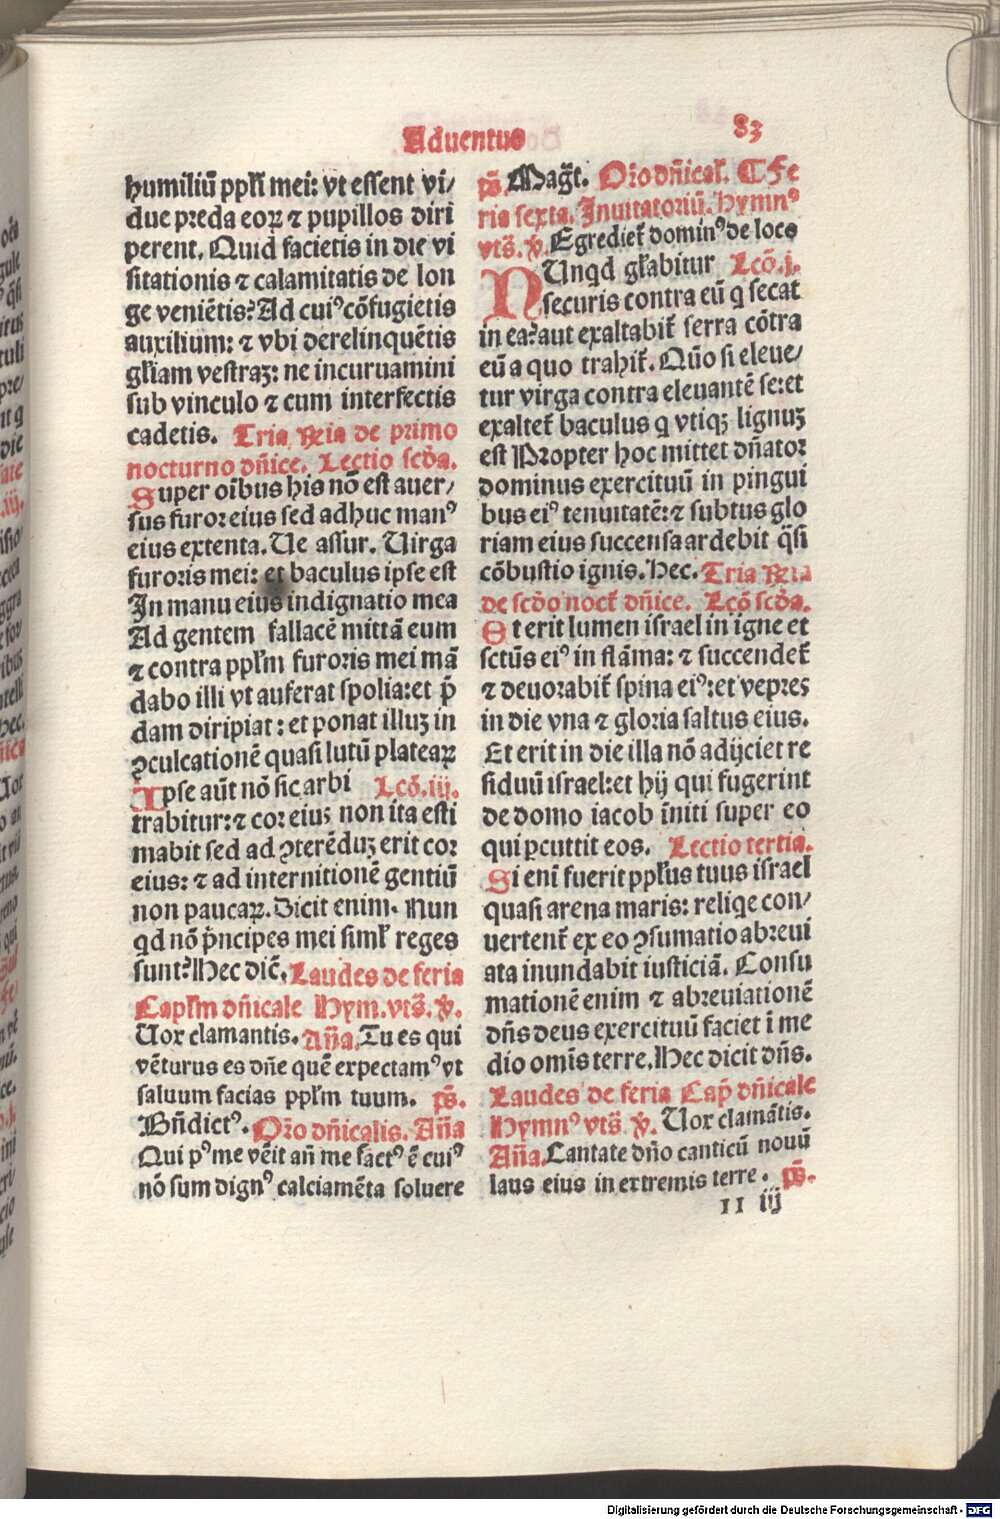 Aduentus
83
humiliū ppl̄i mei: vt essent vi/
due preda eoꝝ ⁊ pupillos diri
perent. Quid facietis in die vi
sitationis ⁊ calamitatis de lon
ge veniētis? Ad cuiꝰ cōfugietis
auxilium: ⁊ vbi derelinquētis
gl̄iam vestraꝫ: ne incuruamini
sub vinculo ⁊ cum interfectis
cadetis. Tria Rn̄ia de primo
nocturno dn̄ice. Lectio scd̄a.
Super oībus his nō est auer/
sus furor eius sed adhuc manꝰ
eius extenta. Ue assur. Uirga
furoris mei: et baculus ipse est
In manu eius indignatio mea
Ad gentem fallacē mittā eum
⁊ contra ppl̄m furoris mei mā
dabo illi vt auferat spolia: et p̄
dam diripiat: et ponat illuꝫ in
ꝯculcationē quasi lutū plateaꝝ
Ipse aūt nō sic arbi Lcō. iij.
trabitur: ⁊ cor eiuꝫ non ita esti
mabit sed ad ꝯterēduꝫ erit cor
eius: ⁊ ad internitionē gentiū
non paucaꝝ. Dicit enim. Nun
qd nō p̄ncipes mei siml̄ reges
sunt? Hec dic̄. Laudes de feria
Capl̄m dn̄icale Hym. vts̄. ℣.
Uox clamantis. Añа. Tu es qui
vēturus es dn̄e quē expectamꝰ vt
saluum facias ppl̄m tuum. ps̄.
Bn̄dictꝰ. Or̄o dn̄icalis. An̄a
Qui pꝰ me vēit an̄ me factꝰ ē cuiꝰ
nō sum dignꝰ calciamēta soluere
ps̄. Magt̄. Or̄o dn̄ical̄. ¶ Fe
ria sexta. Inuitatoriū. Hymnꝰ
vts̄. ℣. Egrediet̄ dominꝰ de loco
NUnqd gl̄abitur Lcō. j.
securis contra eū q secat
in ea? aut exaltabit̄ serra cōtra
eū a quo trahit̄. Quō si eleue/
tur virga contra eleuantē se: et
exaltet̄ baculus q vtiqꝫ lignuꝫ
est Propter hoc mittet dn̄ator
dominus exercituū in pingui
bus eiꝰ tenuitatē: ⁊ subtus glo
riam eius succensa ardebit q̄si
cōbustio ignis. Hec. Tria Rn̄ia
de scd̄o noct̄ dn̄ice. Lcō scd̄a.
Et erit lumen israel in igne et
sctūs eiꝰ in flāma: ⁊ succendet̄
⁊ deuorabit̄ spina eiꝰ: et vepres
in die vna ⁊ gloria saltus eius.
Et erit in die illa nō adijciet re
siduū israel: et hij qui fugerint
de domo iacob īniti super eo
qui ꝑcuttit eos. Lectio tertia.
Si enī fuerit ppl̄us tuus israel
quasi arena maris: reliqe con/
uertent̄ ex eo ꝯsumatio abreui
ata inundabit iusticiā. Consu
mationē enim ⁊ abreuiationē
dn̄s deus exercituū faciet ī me
dio omīs terre. Hec dicit dn̄s.
Laudes de feria Cap̄ dn̄icale
Hymnꝰ vts̄ ℣. Uox clamātis.
An̄a. Cantate dn̄o canticū nouū
laus eius in extremis terre. ps̄.
ll iij
Digitalisierung gefördert durch die Deutsche Forschungsgemeinschaft - DFG